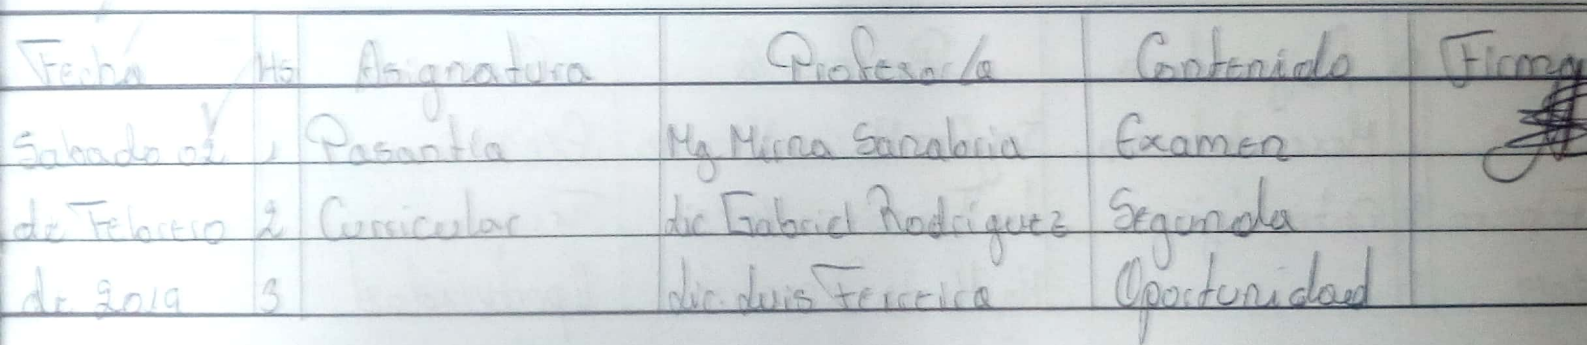 Fecha Hs Asignatura Profesor/a Contenido Firma
Sabado 02 1 Pasantía Mg Mirna Sanabria Examen
de Febrero 2 Curricular Lic Gabriel Rodriguez Segunda
de 2019 3 Lic. Luis Ferreira Oportunidad